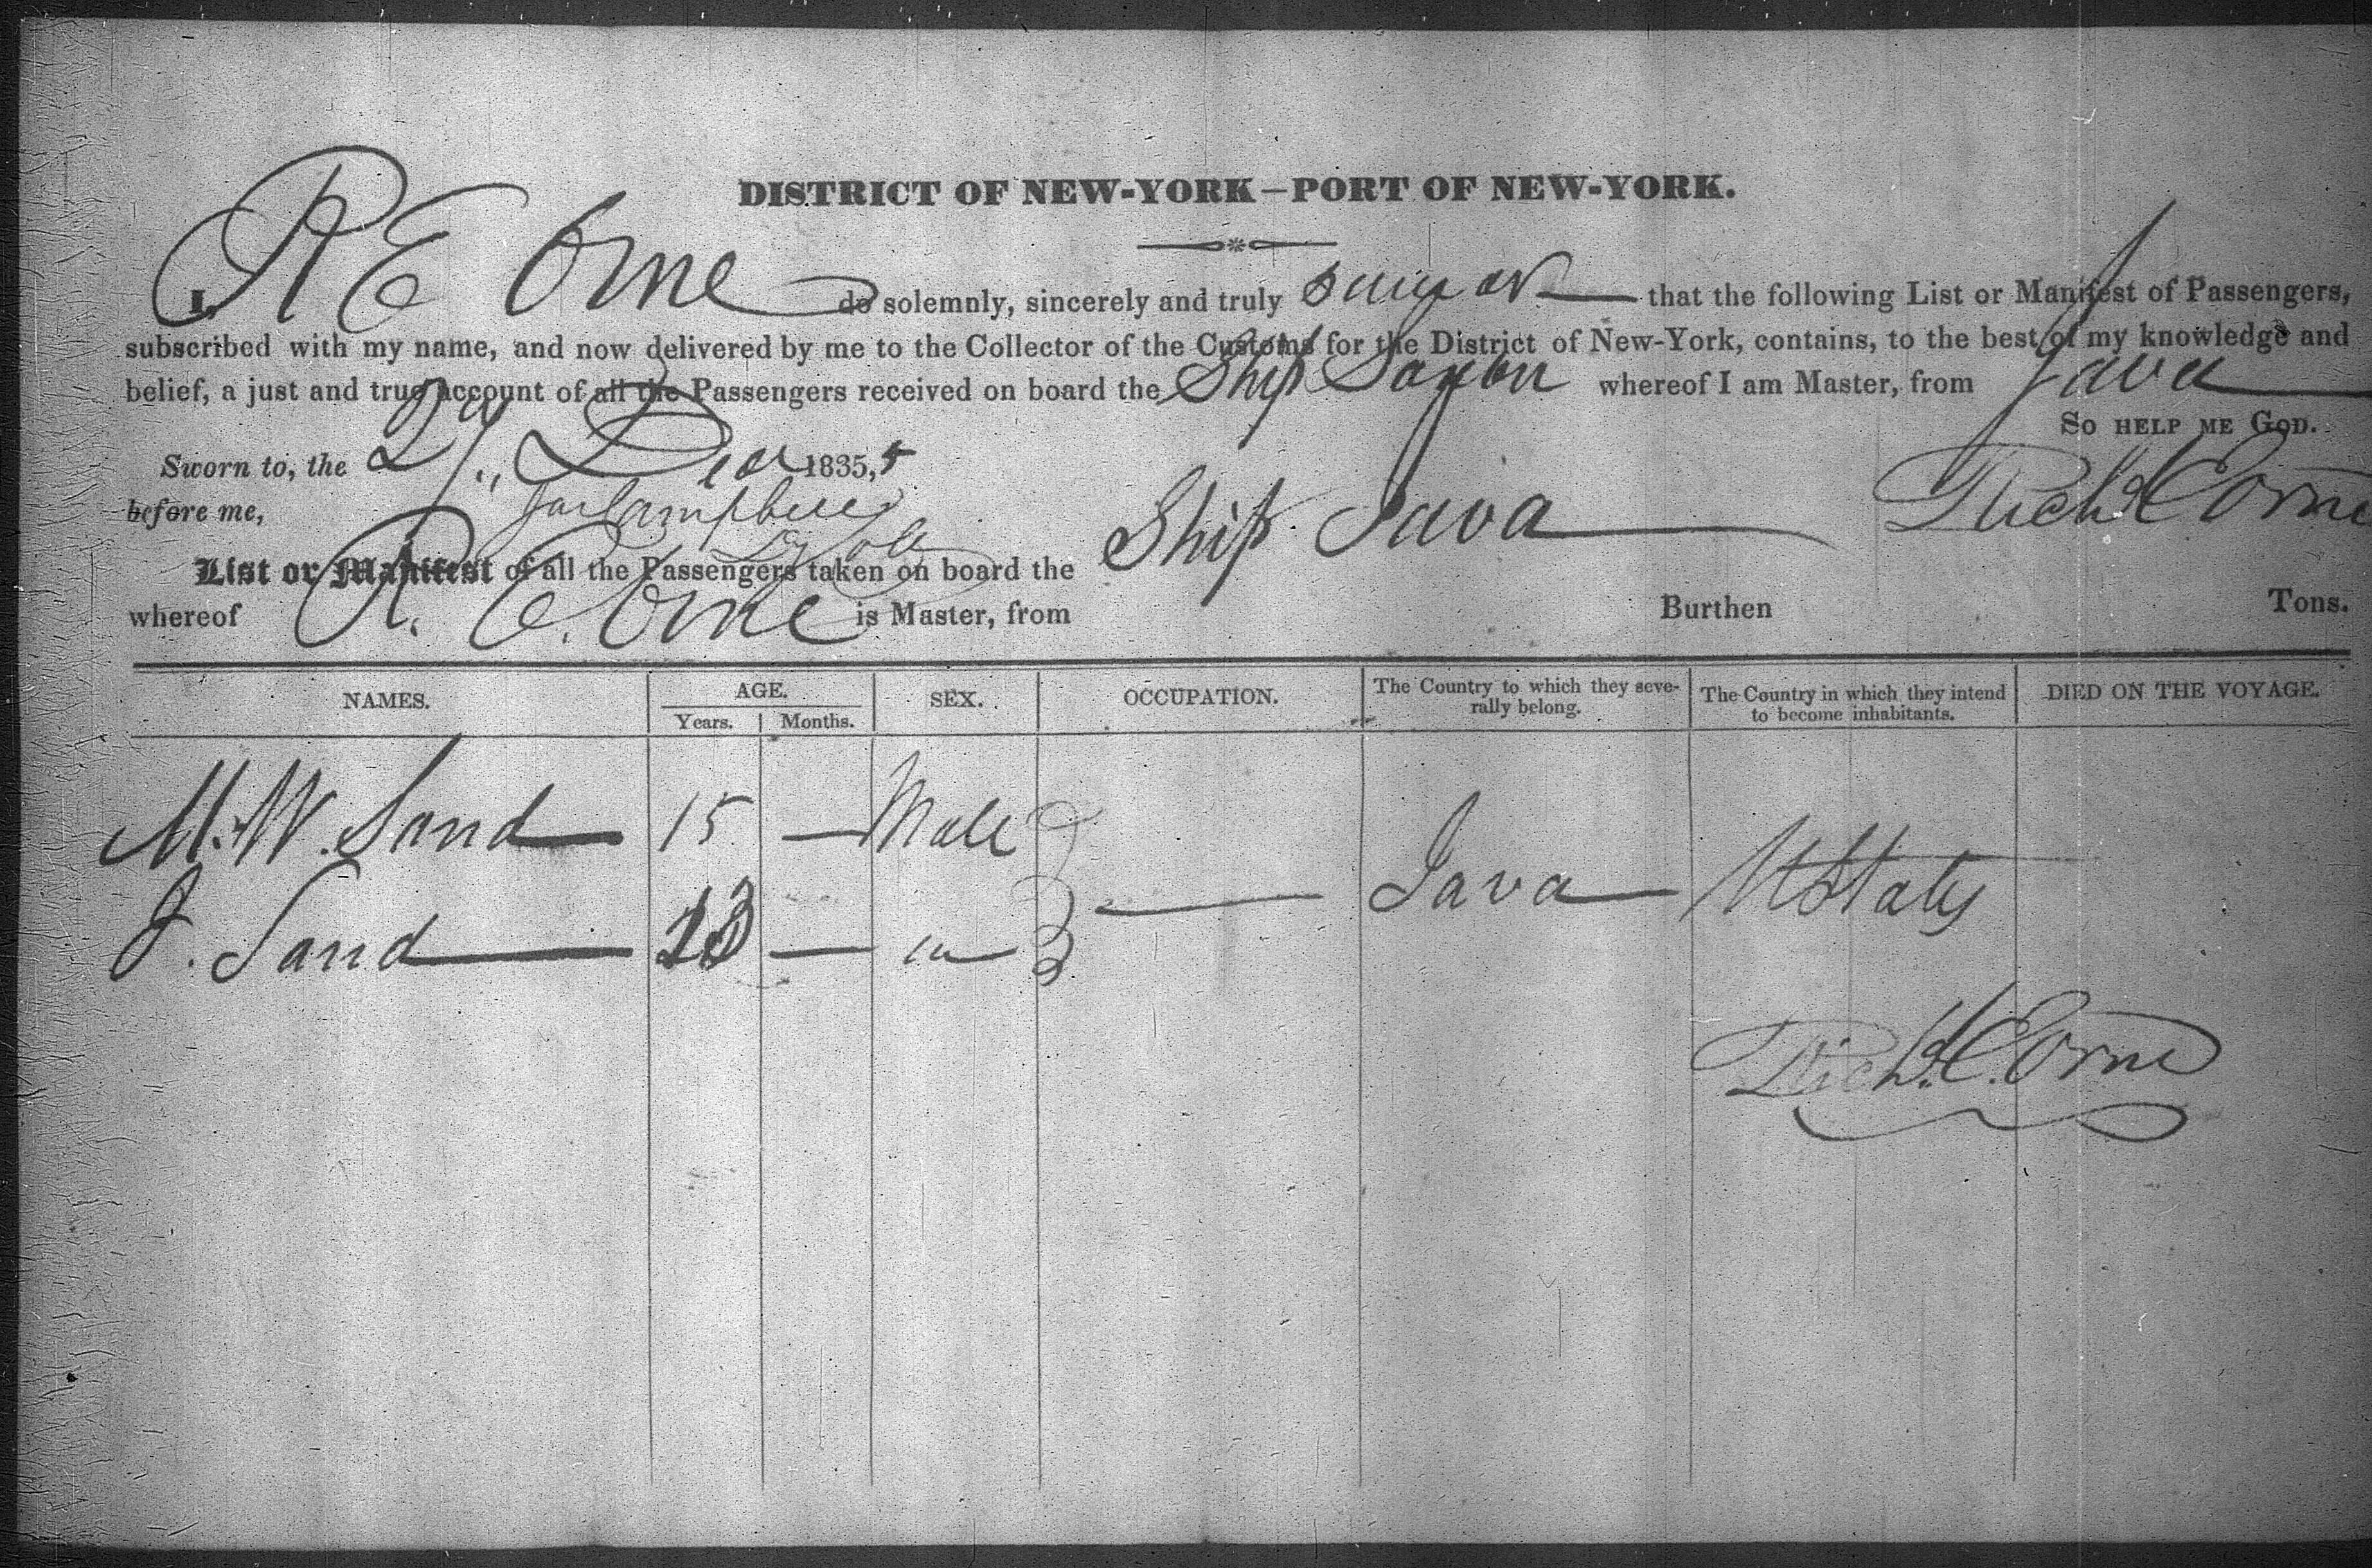 DISTRICT OF NEW-YORK—PORT OF NEW-YORK.
I, R E Orne do solemnly, sincerely and truly swear that the following List or Manifest of Passengers,
subscribed with my name, and now delivered by me to the Collector of the Customs for the District of New-York, contains, to the best of my knowledge and
belief, a just and true account of all the Passengers received on board the Ship Saxon whereof I am Master, from Java
SO HELP ME GOD.
Sworn to, the 29 Dec 1835,5
before me, Campbell Richd E Orne
List or Manifest of all the Passengers taken on board the Ship Java
whereof R. E. Orne is Master, from Burthen Tons.
NAMES. AGE. SEX. OCCUPATION. The Country to which they seve-rally belong. The Country in which they intend to become inhabitants. DIED ON THE VOYAGE.
Years. Months.
M. W. Sand — 15 — Male
— Java — U States
J. Sand — 13 —
Richd. E. Orne